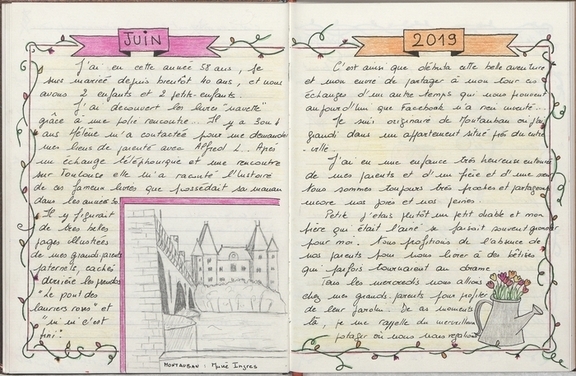 JUIN
J'ai en cette année 58 ans, je
suis mariée depuis bientôt 40 ans, et nous
avons 2 enfants et 2 petits-enfants.
J'ai découvert les livres "navette"
grâce à une jolie rencontre. Il y a 3 ou 4
ans Hélène m'a contactée pour me demander
mes liens de parenté avec Alfred L.. Après
un échange téléphonique et une rencontre
sur Toulouse elle m'a raconté l'histoire
de ces fameux livres que possédait sa maman
dans les années
Il y figurait
de très belles
pages illustrées
de mes grands-parents
paternels, cachés
derrière les pseudos
"Le pont des
lauriers roses" et
"ni ni c'est
fini".
MONTAUBAN : Musée Ingres
2019
C'est ainsi que débuta cette belle aventure
et mon envie de partager à mon tour ces
échanges d'un autre temps qui nous prouvent
aujourd'hui que Facebook n'a rien inventé...
Je suis originaire de Montauban où j'ai
grandi dans un appartement situé près du centre
ville.
J'ai eu une enfance très heureuse entourée
de mes parents et d'un frère et d'une
Nous sommes toujours très proches et partageons
encore nos joies et nos peines.
Petite j'étais plutôt un petit diable et mon
frère qui était l'aîné se faisait souvent gronder
pour moi. Nous profitions de l'absence de
nos parents pour nous livrer à des bêtises
qui parfois tournaient au drame.
Tous les mercredis nous allions
chez mes grands-parents pour profiter
de leur jardin. De ces moments
là, je me rappelle du merveilleux
potager où nous nous